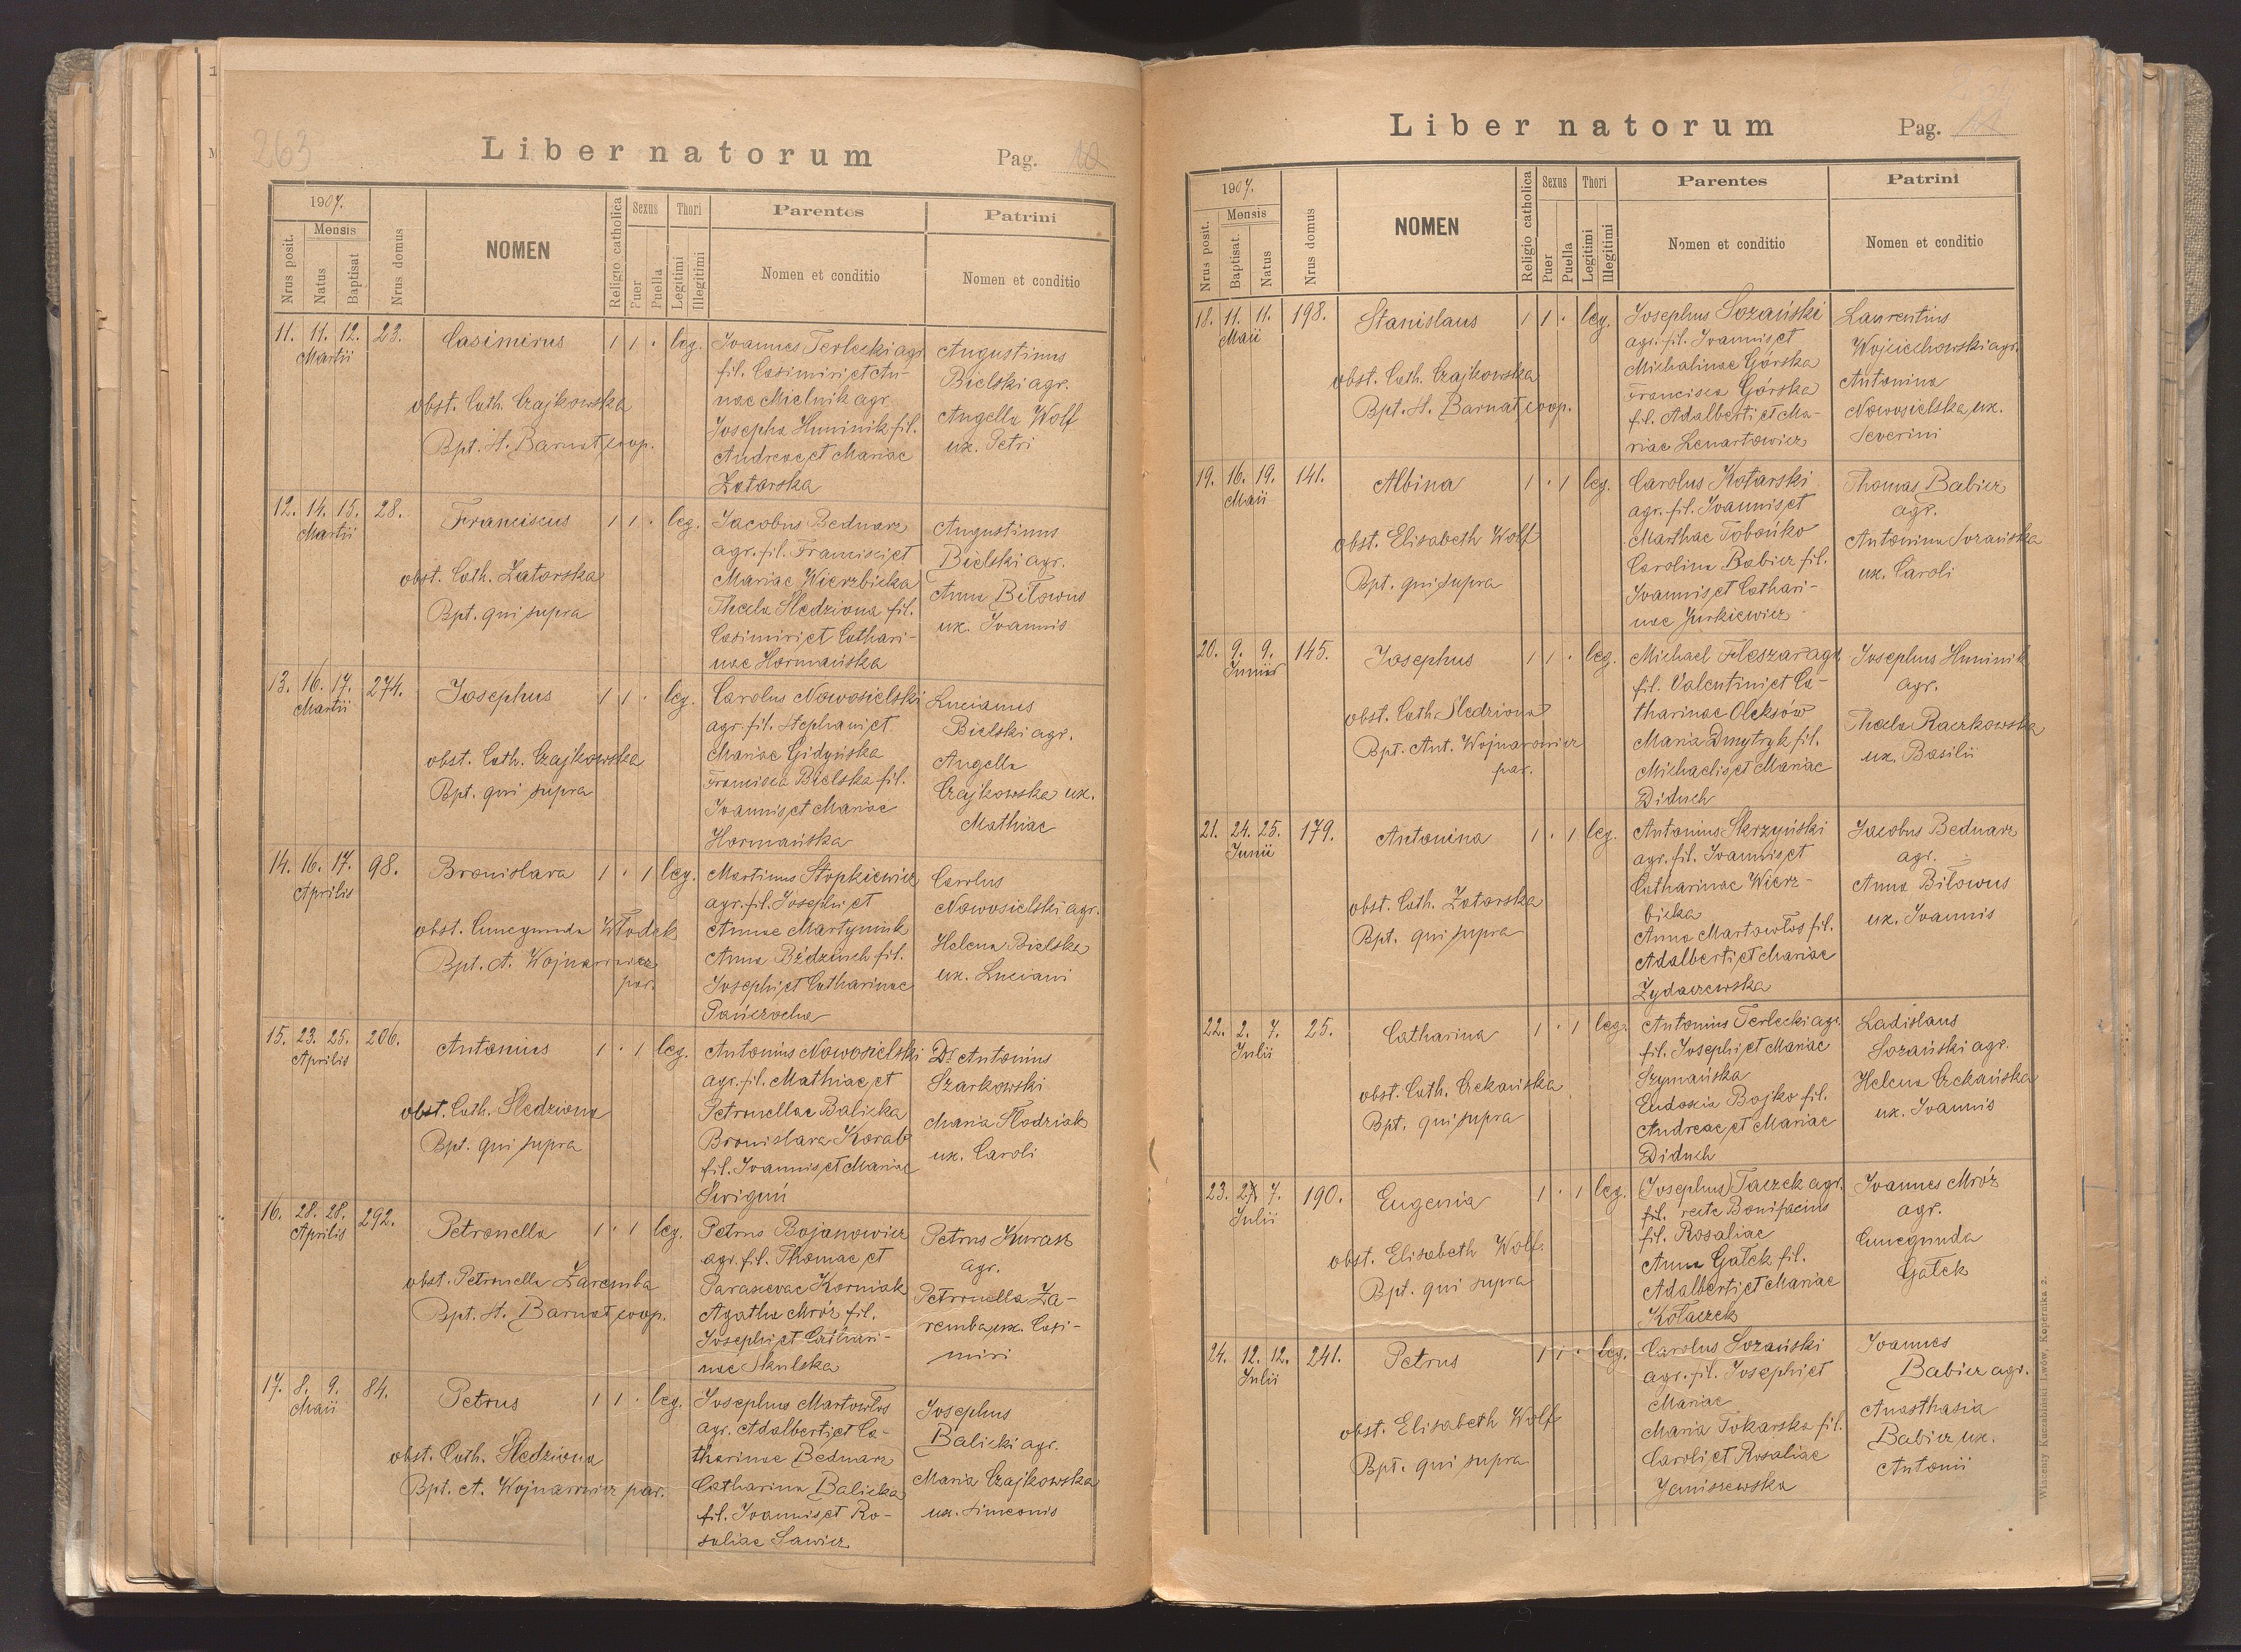 263
Liber natorum
Pag. 10
1907.
Nrus posit.
Mensis
Natus
Baptisat
Nrus domus
NOMEN
Religio catholica
Sexus
Puer
Puella
Thori
Legitimi
Illegitimi
Parentes
Nomen et conditio
Patrini
Nomen et conditio
11. 11. 12. 23. Casimirus 1 1 . leg.
Martii
obst. Cath. Czajkowska
Bpt. St. Barnat, coop.
Ioannes Terlecki agr.
fil. Casimiri, et An-
nae Mielnik agr.
Josepha Huminik fil.
Andreae, et Mariae
Zatorska
Augustinus
Bielski agr.
Angella Wolf
ux. Petri
12. 14. 15. 28. Franciscus 1 1 . leg.
Martii
obst. Cath. Zatorska
Bpt. qui supra
Jacobus Bednarz
agr. fil. Francisci, et
Mariae Wierzbicka
Thecla Śledziona fil.
Casimiri, et Cathari-
nae Hormańska
Augustinus
Bielski agr.
Anna Biłowus
ux. Ioannis
13. 16. 17. 274. Josephus 1 1 . leg.
Martii
obst. Cath. Czajkowska
Bpt. qui supra
Carolus Nowosielski
agr. fil. Stephani, et
Mariae Gidyńska
Francisca Bielska fil.
Ioannis, et Mariae
Hormańska
Lucianus
Bielski agr.
Angella
Czajkowska ux.
Mathiae
14. 16. 17. 98. Bronislava 1 . 1 leg.
Aprilis
obst. Cunegunda Włodek
Bpt. A. Wojnarowicz
par.
Martinus Stopkiewicz
agr. fil. Josephi, et
Annae Martyniuk
Anna Bździuch fil.
Josephi, et Catharinae
Carolus
Nowosielski agr.
Helena Bielska
ux. Luciani
15. 23. 25. 206. Antonius 1 . 1 leg.
Aprilis
obst. Cath. Śledziona
Bpt. qui supra
Antonius Nowosielski
agr. fil. Mathiae, et
Petronellae Balicka
Bronislava Korab
fil. Ioannis, et Mariae
Dr Antonius
Szarkowski
Maria Słodziak
ux. Caroli
16. 28. 28. 292. Petronella 1 . 1 leg.
Aprilis
obst. Petronella Zaremba
Bpt. St. Barnat, coop.
Petrus Bojanowicz
agr. fil. Thomae, et
Parascevae Korniak
Agatha Mróz fil.
Josephi, et Cathari-
nae Skulska
Petrus Kurasz
agr.
Petronella Za-
remba, ux. Casi-
miri
17. 8. 9. 84. Petrus 1 1 . leg.
Maii
obst. Cath. Śledziona
Bpt. A. Wojnarowicz par.
Josephus Martowłos
agr. Adalberti, et Ca-
tharinae Bednarz
Catharina Balicka
fil. Ioannis, et Ro-
saliae Sawicz
Josephus
Balicki agr.
Maria Czajkowska
ux. Simeonis
Liber natorum
Pag. 11
1907.
Nrus posit.
Mensis
Baptisat.
Natus
Nrus domus
NOMEN
Religio catholica
Sexus
Puer
Puella
Thori
Legitimi
Illegitimi
Parentes
Nomen et conditio
Patrini
Nomen et conditio
18. 11. 11. 198. Stanislaus 1 1 . leg.
Maii
obst. Cath. Czajkowska
Bpt. St. Barnat, coop.
Josephus Sozański
agr. fil. Ioannis, et
Michalinae Górska
Francisca Górska
fil. Adalberti, et Ma-
riae Lenartowicz
Laurentius
Wojciechowski agr.
Antonina
Nowosielska, ux.
Severini
19. 16. 19. 141. Albina 1 . 1 leg.
Maii
obst. Elisabeth Wolf
Bpt. qui supra
Carolus Kotarski
agr. fil. Ioannis, et
Marthae Tobońko
Carolina Babicz fil.
Ioannis, et Cathari-
nae Jurkiewicz
Thomas Babicz
agr.
Antonina Sozańska
ux. Caroli
20. 9. 9. 145. Josephus 1 1 . leg.
Junii
obst. Cath. Śledziona
Bpt. Ant. Wojnarowicz
par.
Michael Fleszar agr.
fil. Valentini, et Ca-
tharinae Oleksów
Maria Dmytryk fil.
Michaelis, et Mariae
Diduch
Josephus Huminik
agr.
Thecla Raczkowska
ux. Basilii
21. 24. 25. 179. Antonina 1 . 1 leg.
Junii
obst. Cath. Zatorska
Bpt. qui supra
Antonius Skrzyński
agr. fil. Ioannis, et
Catharinae Wierz-
bicka
Anna Martowłos fil.
Adalberti, et Mariae
Żydaczewska
Jacobus Bednarz
agr.
Anna Biłowus
ux. Ioannis
22. 2. 7. 25. Catharina 1 . 1 leg.
Julii
obst. Cath. Czekańska
Bpt. qui supra
Antonius Terlecki agr.
fil. Josephi, et Mariae
Szymańska
Eudoxia Bojko fil.
Andreae, et Mariae
Diduch
Ladislaus
Sozański agr.
Helena Czekańska
ux. Ioannis
23. 7. 190. Eugenia 1 . 1 leg.
Julii
obst. Elisabeth Wolf.
Bpt. qui supra
(Josephus) Taczek agr.
fil. recte Bonifacius
fil. Rosaliae
Anna Gałek fil.
Adalberti, et Mariae
Kołaczek
Ioannes Mróz
agr.
Cunegunda
Gałek
24. 12. 12. 241. Petrus 1 1 . leg.
Julii
obst. Elisabeth Wolf
Bpt. qui supra
Carolus Sozański
agr. fil. Josephi, et
Mariae
Maria Tokarska fil.
Caroli, et Rosaliae
Janiszewska
Ioannes
Babicz agr.
Anasthasia
Babicz, ux.
Antonii
Wincenty Kuczabiński Lwów, Kopernika 2.